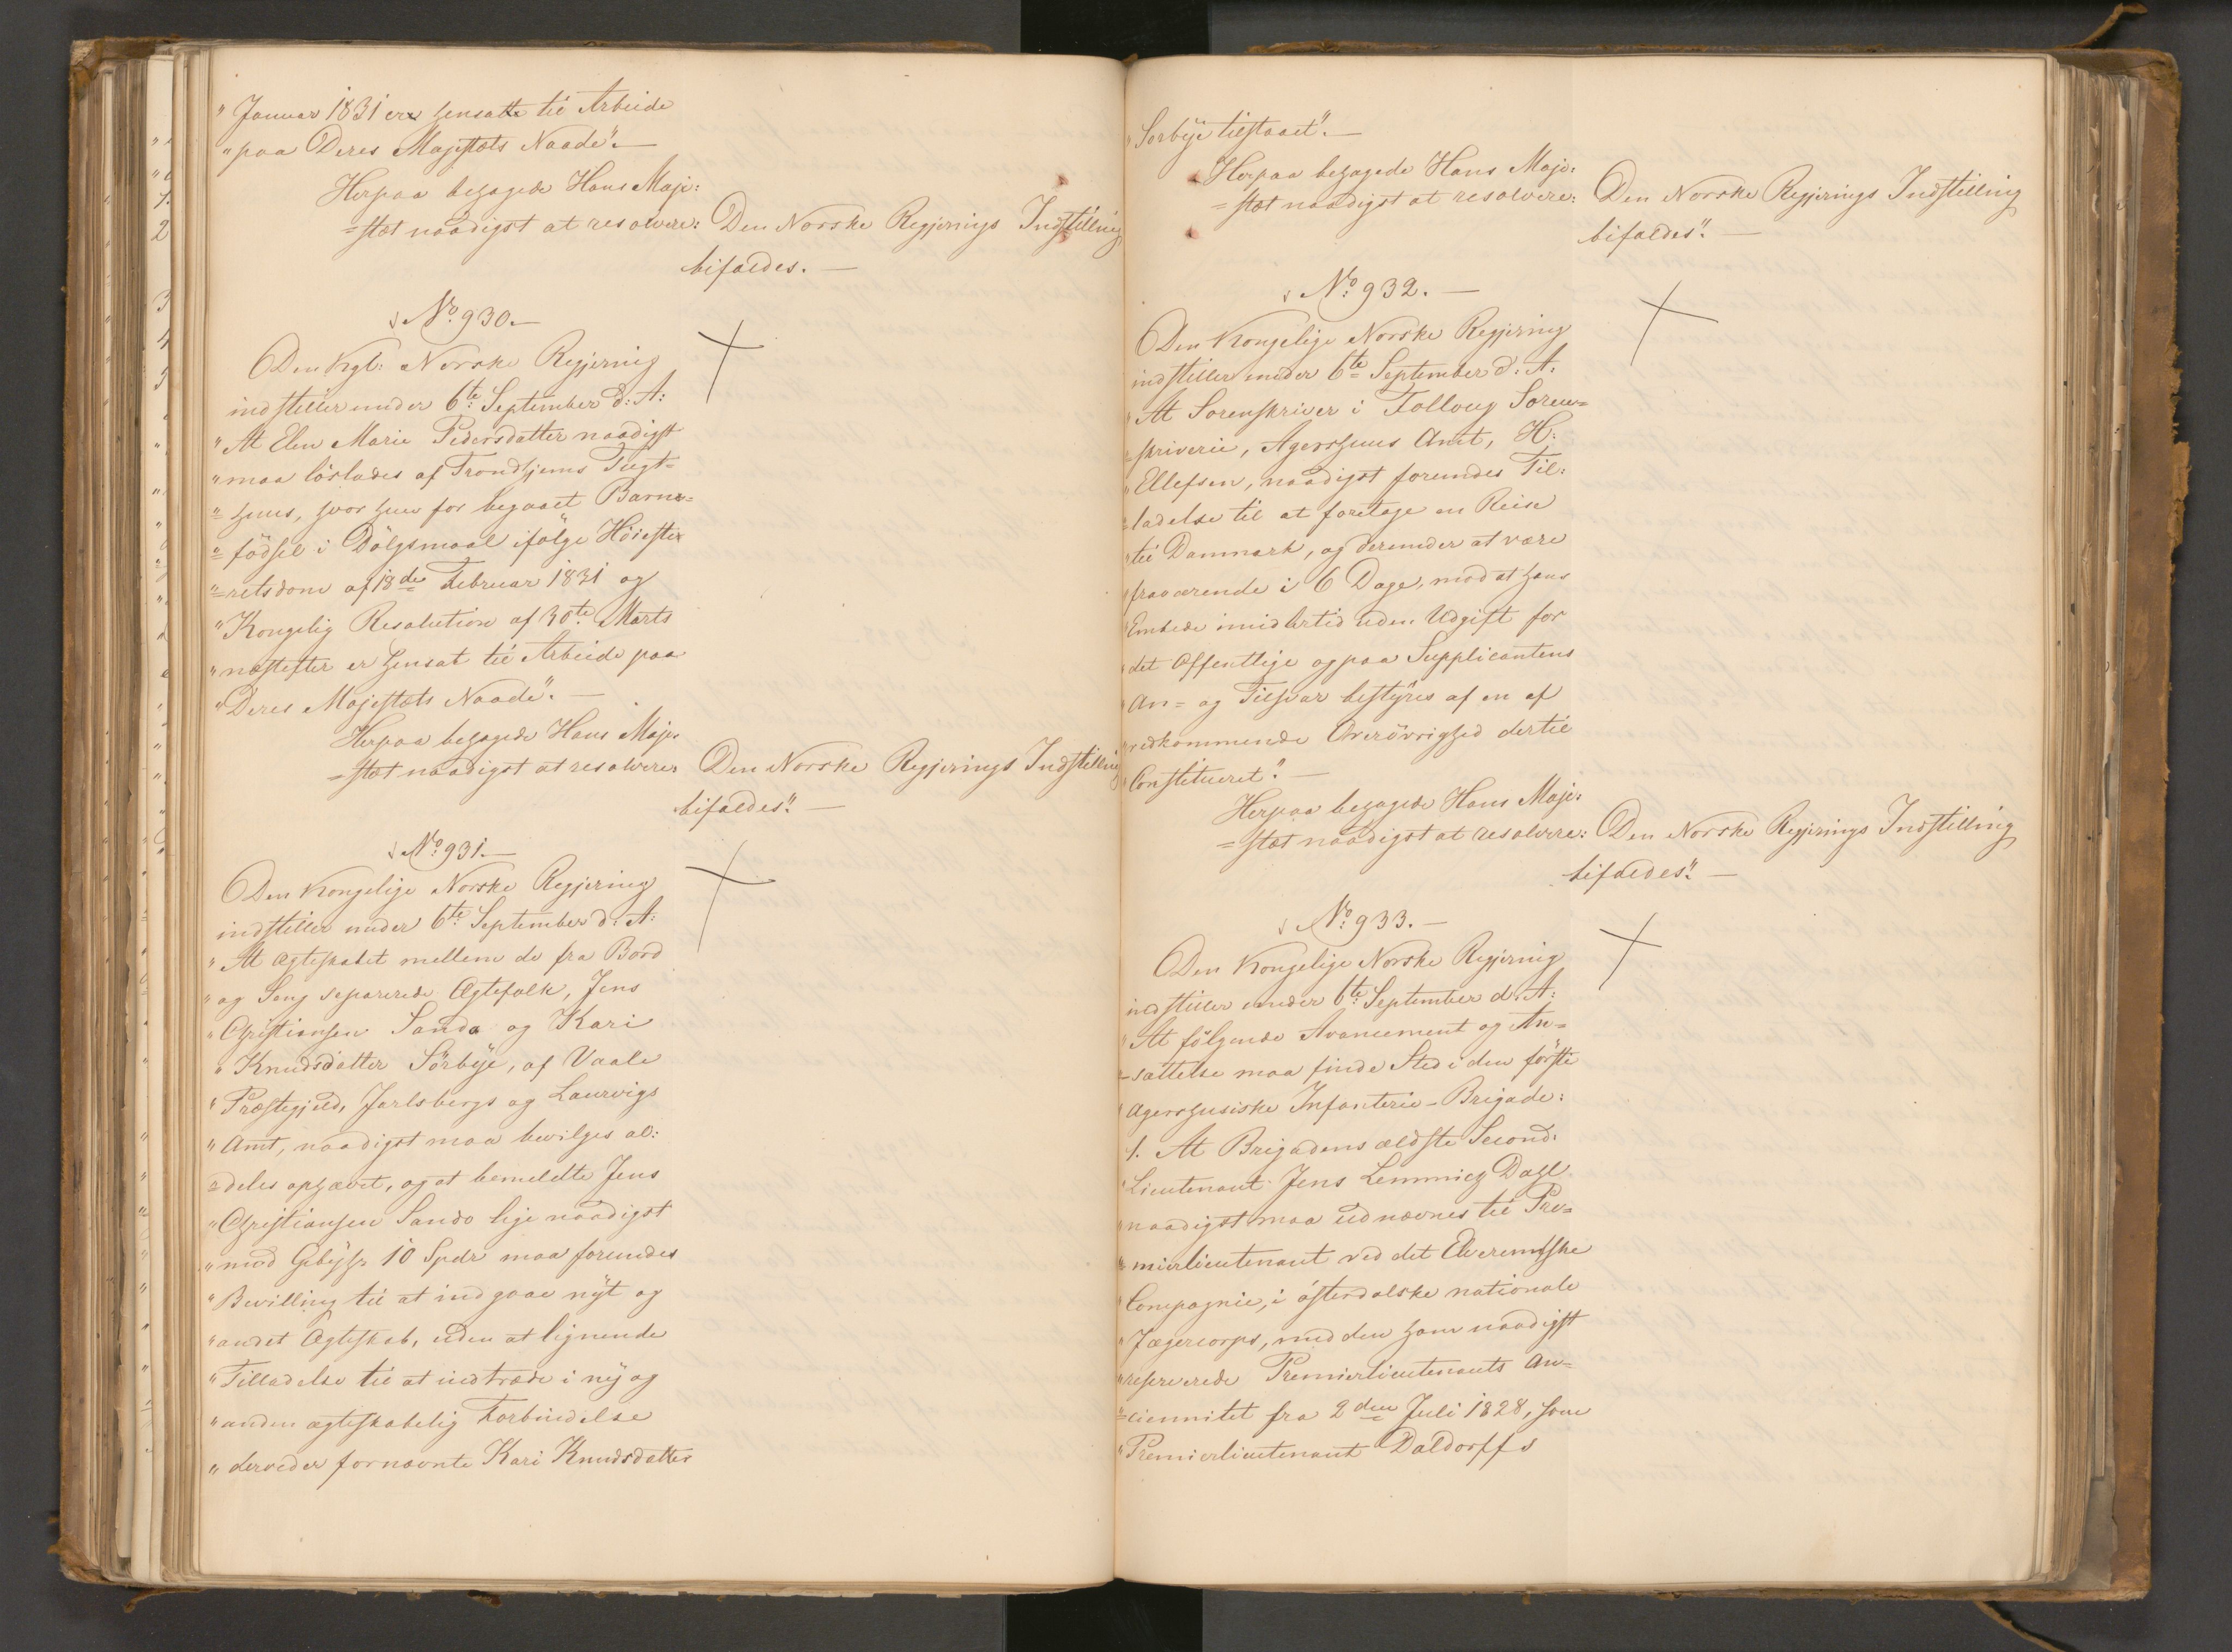 "Januar 1831 ere hensatte til Arbeide
"paa Deres Majestæts Naade". —
Herpaa behagede Hans Maje:
=stæt naadigst at resolvere: Den Norske Regjerings Indstilling
bifaldes. —
No. 930. —
Den Kgl: Norske Regjering
indstiller under 6te September d: A:
"At Elen Marie Pedersdatter naadigst
"maa löslades af Trondhjems Tugt=
"=huus, hvor hun for begaaet Barne=
"=födsel i Dölgsmaal ifölge Höieste
"=retsdom af 18de Februar 1831 og
"Kongelig Resolution af 30te Marts
"næstefter er hensat til Arbeide paa
"Deres Majestæts Naade". —
Herpaa behagede Hans Maje
=stæt naadigst at resolvere Den Norske Regjerings Indstilling
bifaldes". —
No. 931. —
Den Kongelige Norske Regjering
indstiller under 6te September d: A:
"At Ægteskabet mellem de fra Bord
"og Seng separerede Ægtefolk, Jens
"Christiansen Sando og Kari
"Knudsdatter Sörbÿe, af Vaale
"Præstegjeld, Jarlsbergs og Laurvigs
"Amt, naadigst maa bevilges al:
"=deles ophævet, og at bemeldte Jens
"Christiansen Sando lige naadigst
"mod Gebÿhr 10 Spdr maa forundes
"Bevilling til at indgaae nÿt og
"andet Ægteskab, uden at lignende
"Tilladelse til at indtræde i nÿ og
"anden ægteskabelig Forbindelse
"derved er fornævnte Kari Knudsdatter
"Sorbÿe tilstaaet". —
Herpaa behagede Hans Maje:
=stæt naadigst at resolvere: Den Norske Regjerings Indstilling
bifaldes". —
No. 932. —
Den Kongelige Norske Regjering
indstiller under 6te September d: A:
"At Sorenskriver i Folloug Soren=
"=skriverie, Agershuus Amt, H:
"Ellefsen, naadigst forundes Til:
"=ladelse til at foretage en Reise
"til Danmark, og derunder at være
"fraværende i 6 Dage, mod at hans
"Embede imidlertid uden Udgift for
"det Offentlige og paa Supplicantens
"An= og Tilsvar bestÿres af en af
"vedkommende Överövrighed dertil
"Constitueret". —
Herpaa behagede Hans Maje:
=stæt naadigst at resolvere: Den Norske Regjerings Indstilling
bifaldes". —
No. 933. —
Den Kongelige Norske Regjering
indstiller under 6te September d: A:
"At fölgende Avancement og An=
"=sættelse maa finde Sted i den förste
"Agershusiske Infanterie-Brigade:
1. At Brigadens ældste Second:
"Lieutenant Jens Lemmich Dahl
"naadigst maa udnævnes til Pre=
"=mierlieutenant ved det Elverumske
"Compagnie, i österdalske nationale
"Jægercorps, med den ham naadigst
"reserverede Premierlieutenants An=
"=ciennitet fra 2den Juli 1828, som
"Premierlieutenant Daldorffs